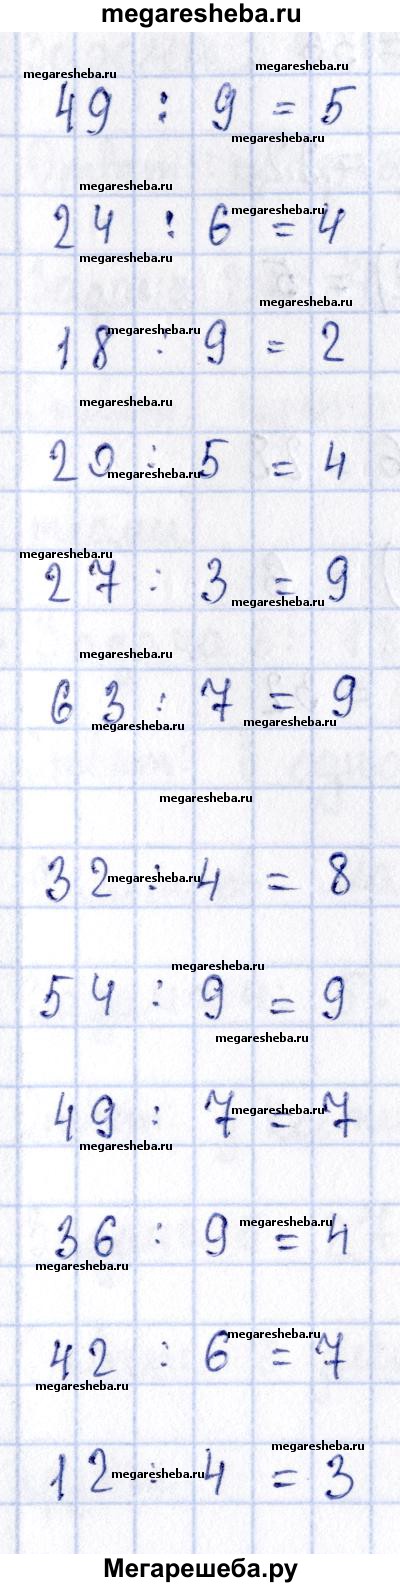 megaresheba.ru
megaresheba.ru
megaresheba.ru
49 : 9 = 5
megaresheba.ru
megaresheba.ru
megaresheba.ru
24 : 6 = 4
megaresheba.ru
megaresheba.ru
megaresheba.ru
18 : 9 = 2
megaresheba.ru
20 : 5 = 4
megaresheba.ru
megaresheba.ru
27 : 3 = 9
megaresheba.ru
megaresheba.ru
63 : 7 = 9
megaresheba.ru
megaresheba.ru
megaresheba.ru
32 : 4 = 8
megaresheba.ru
megaresheba.ru
54 : 9 = 9
megaresheba.ru
49 : 7 = 7
megaresheba.ru
megaresheba.ru
megaresheba.ru
36 : 9 = 4
megaresheba.ru
megaresheba.ru
42 : 6 = 7
megaresheba.ru
megaresheba.ru
12 : 4 = 3
megaresheba.ru
Мегарешеба.ру